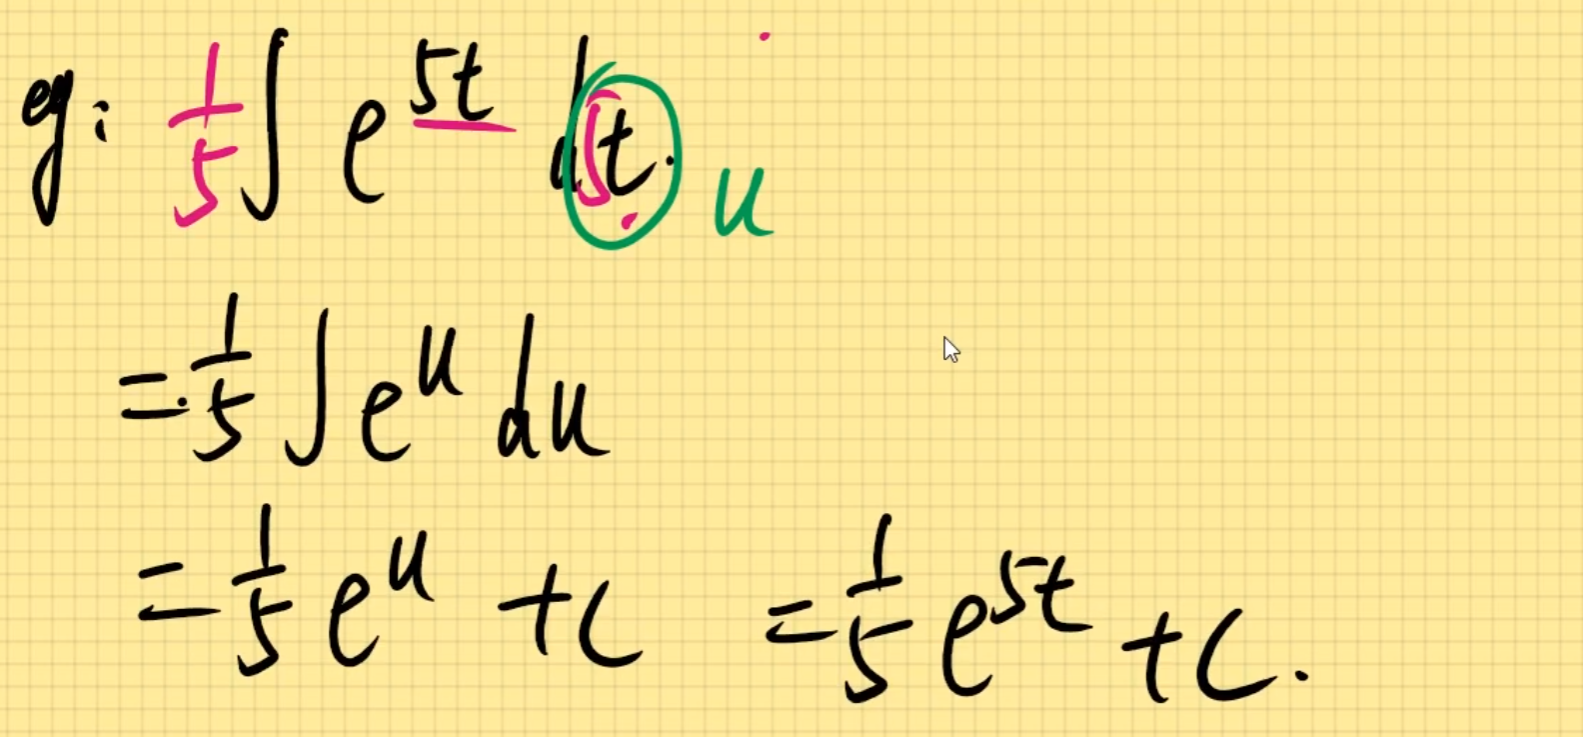 eg: 1/5 ∫ e^{5t} d5t. u
= 1/5 ∫ e^u du
= 1/5 e^u + C = 1/5 e^{5t} + C.